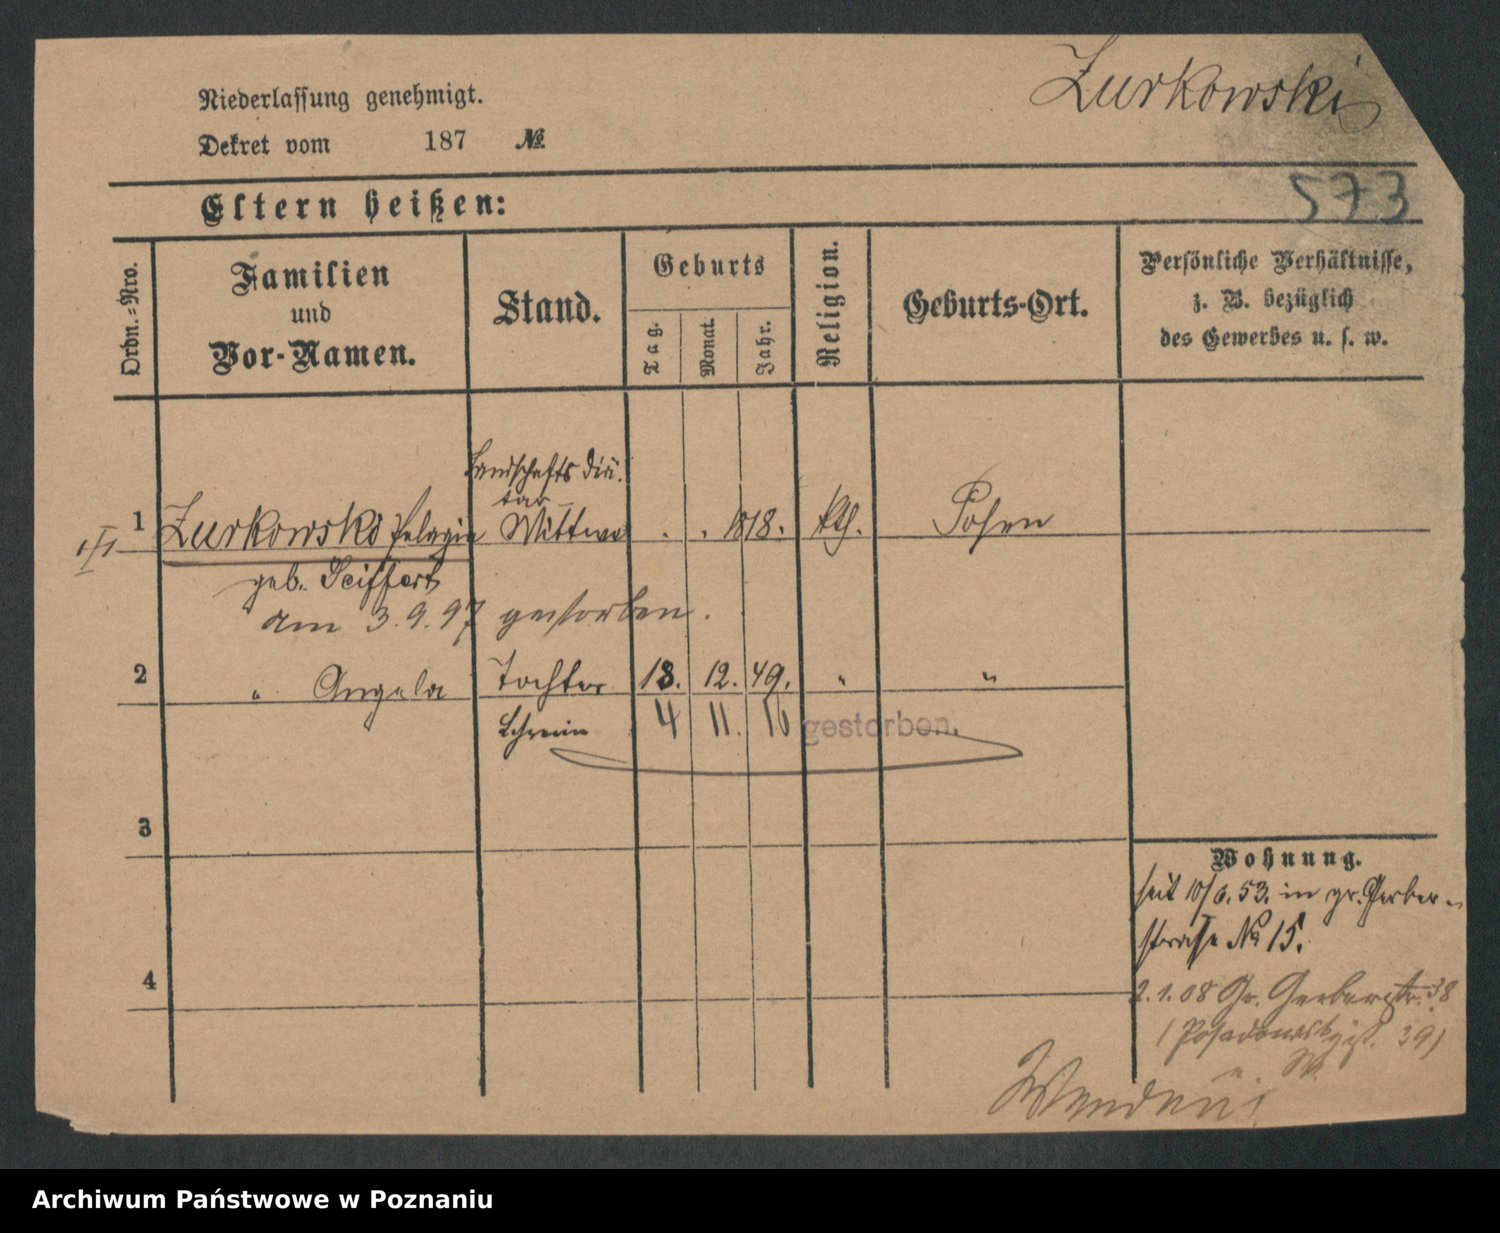 Zurkowski
Niederlassung genehmigt.
Dekret vom 187 №
573
Eltern heißen:
Ordn.-Nro.
Familien und Vor-Namen.
Stand.
Geburts
Tag.
Monat.
Jahr.
Religion.
Geburts-Ort.
Persönliche Verhältnisse,
z. B. bezüglich
des Gewerbes u. s. w.
Landschafts Diä-
tar
1 Zurkowski Pelagia Wittwe . . 1818. kth. Posen
geb. Seiffert
am 3.9.97 gestorben.
2 " Angela Tochter 18. 12. 49. " "
4 11. 16 gestorben.
3
4
Wohnung.
seit 10/6. 53. in gr. Gerber-
straße № 15.
2.1.08 Gr. Gerberstr. 38
39)
Archiwum Państwowe w Poznaniu